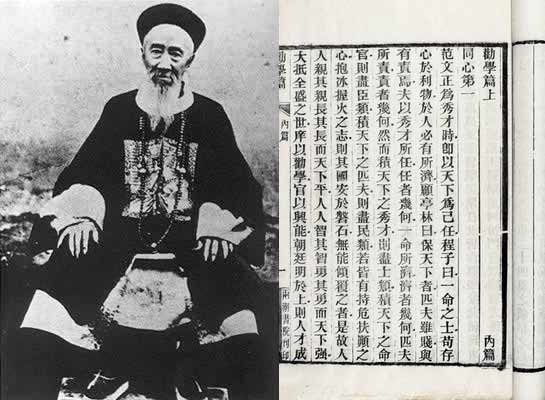 勸學篇上　內篇
同心第一
范文正爲秀才時卽以天下爲己任程子曰一命之士苟存
心於利物於人必有所濟顧亭林曰保天下者匹夫雖賤與
有責焉夫以秀才所任任者幾何一命所濟濟者幾何匹夫
所責責者幾何然而積天下之秀才則盡士類積天下之命
官則盡臣類積天下之匹夫則盡民類若皆有持危扶顚之
心抱冰握火之志則其國安於磐石無能傾覆之者是故人
人親其親長其長而天下平人人智其智勇其勇而天下强
大抵全盛之世庠以勸學官以興能朝廷明於上則人才成
勸學篇　內篇　一　兩湖書院刊印